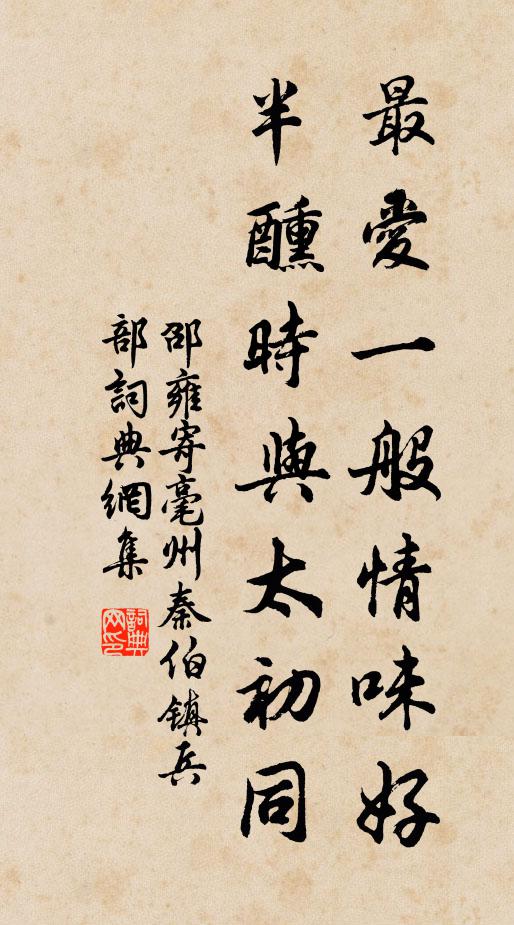 最愛一般情味好
半醺時與太初同
邵雍寄毫州秦伯鎮兵
部詞典網集
詞典网印